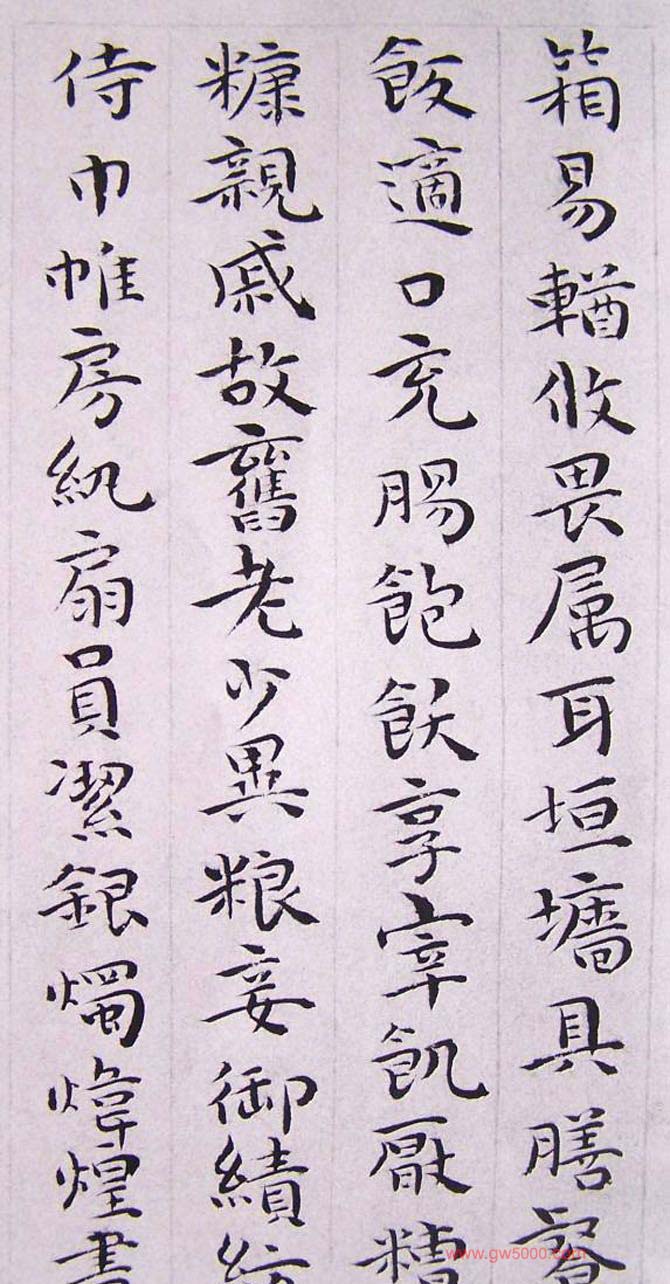 箱易輶攸畏属耳垣墻具膳餐
飯適口充腸飽飫享宰飢厭糟
糠親戚故舊老少異粮妾御績紡
侍巾帷房紈扇員潔銀燭煒煌晝
www.gw5000.com